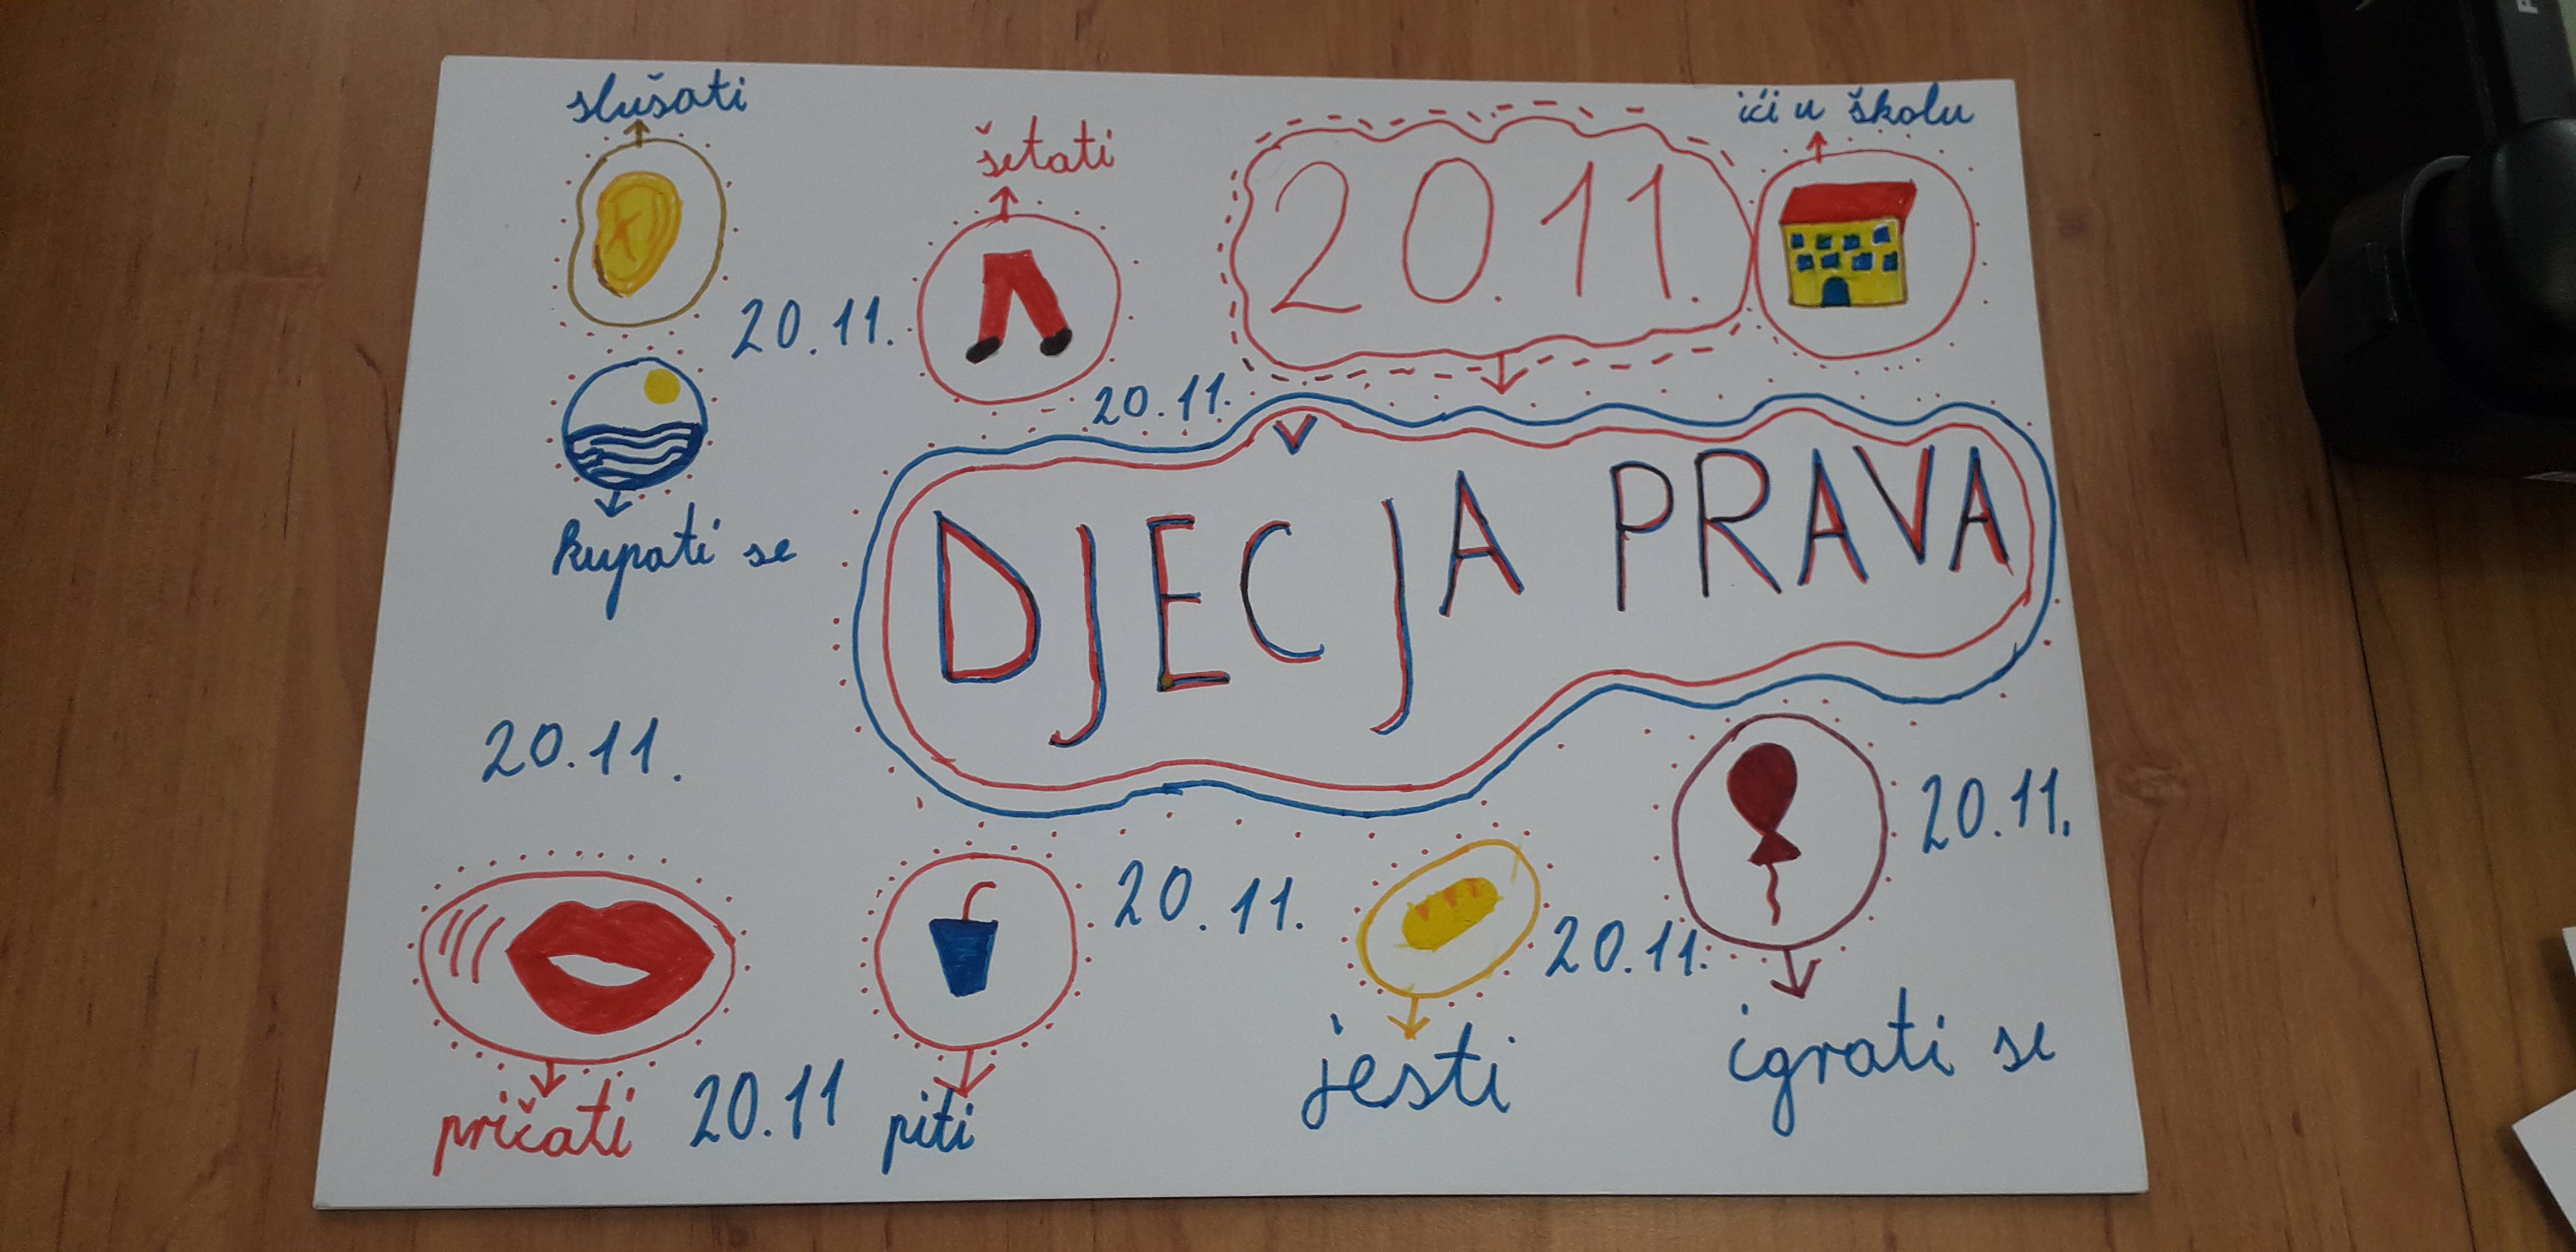 slušati
šetati
20.11.
ići u školu
20.11.
20.11.
kupati se
DJEČJA PRAVA
20.11.
20.11.
20.11.
20.11.
pričati
20.11
piti
jesti
igrati se